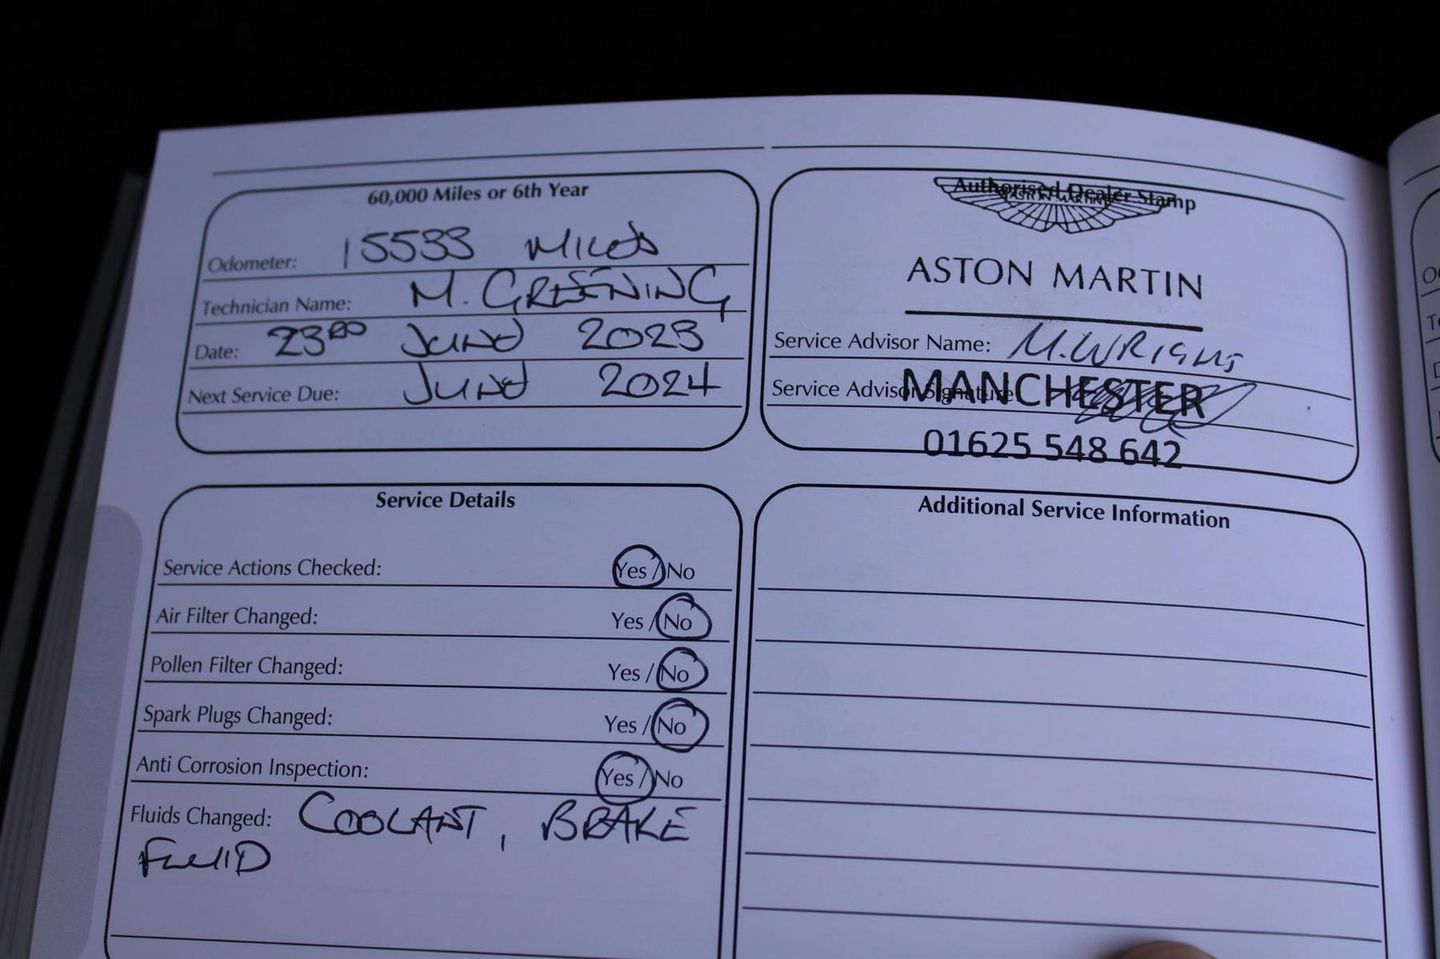 60,000 Miles or 6th Year
Odometer: 15533 MILES
Technician Name: M. GREENING
Date: 23RD JUNE 2023
Next Service Due: JUNE 2024
Authorised Dealer Stamp
ASTON MARTIN
ASTON MARTIN
Service Advisor Name: M. WRIGHT
Service Advisor Signature:
MANCHESTER
01625 548 642
Service Details
Service Actions Checked: Yes / No
Air Filter Changed: Yes / No
Pollen Filter Changed: Yes / No
Spark Plugs Changed: Yes / No
Anti Corrosion Inspection: Yes / No
Fluids Changed: COOLANT, BRAKE
FLUID
Additional Service Information